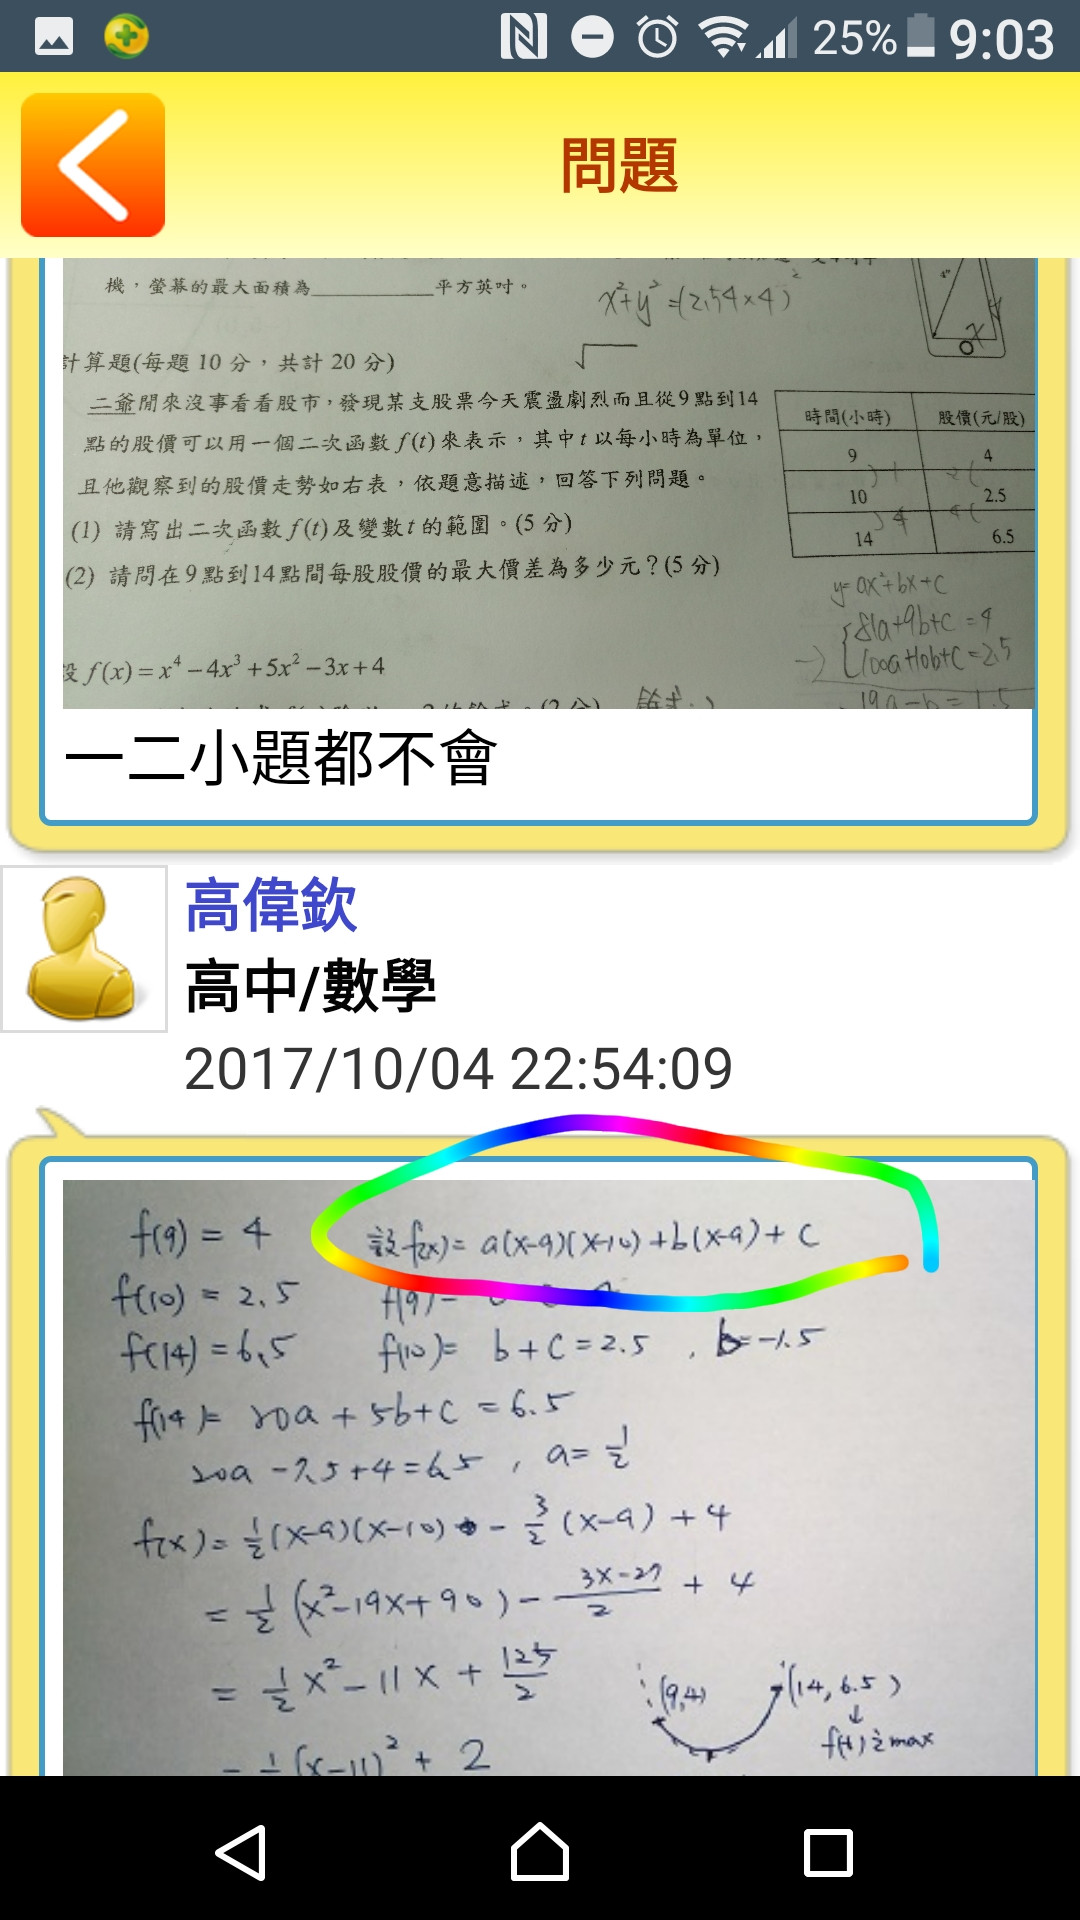 25% 9:03
問題
機，螢幕的最大面積為________平方英吋。
x²+y²=(2.54×4)²
4"
x
計算題(每題 10 分，共計 20 分)
二爺閒來沒事看看股市，發現某支股票今天震盪劇烈而且從9點到14
點的股價可以用一個二次函數 f(t) 來表示，其中 t 以每小時為單位，
且他觀察到的股價走勢如右表，依題意描述，回答下列問題。
(1) 請寫出二次函數 f(t) 及變數 t 的範圍。(5 分)
(2) 請問在9點到14點間每股股價的最大價差為多少元？(5 分)
時間(小時) 股價(元/股)
9 4
10 2.5
14 6.5
y=ax²+bx+c
81a+9b+c=4
100a+10b+c=2.5
19a-b=1.5
設 f(x)=x⁴-4x³+5x²-3x+4
一二小題都不會
高偉欽
高中/數學
2017/10/04 22:54:09
f(9) = 4 設f(x)= a(x-9)(x-10)+b(x-9)+c
f(10) = 2.5
f(14) = 6.5 f(10)= b+c=2.5 , b=-1.5
f(14)= 20a+5b+c = 6.5
20a-7.5+4=6.5 , a=1/2
f(x)= 1/2(x-9)(x-10) - 3/2(x-9)+4
= 1/2(x²-19x+90) - (3x-27)/2 + 4
= 1/2x²-11x+125/2
(9,4) (14,6.5)
↓
= 1/2(x-11)²+2